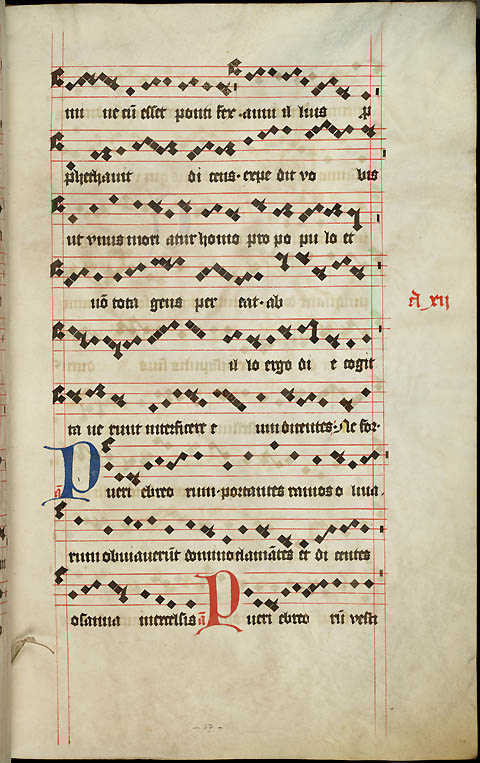 mi ne cū esset ponti fex · anni il lius p
phethauit di cens · expe dit vo bis
ut vnus mori atur homo pro po pu lo et
nō tota gens per eat · ab
A xij
il lo ergo di e cogit
ta ue runt interficere e um dicentes · Ne for ·
Pueri ebreo rum · portantes ramos o liua ·
rum obuiauerūt domino clamātes et di centes
osanna inexcelsis a Pueri ebreo rū vesti